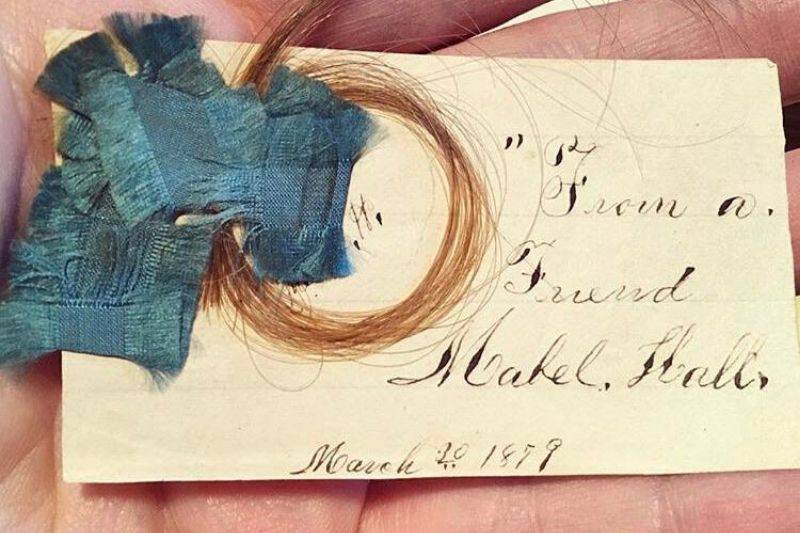 " From a.
Friend
Mabel. Hall.
March 20 1879